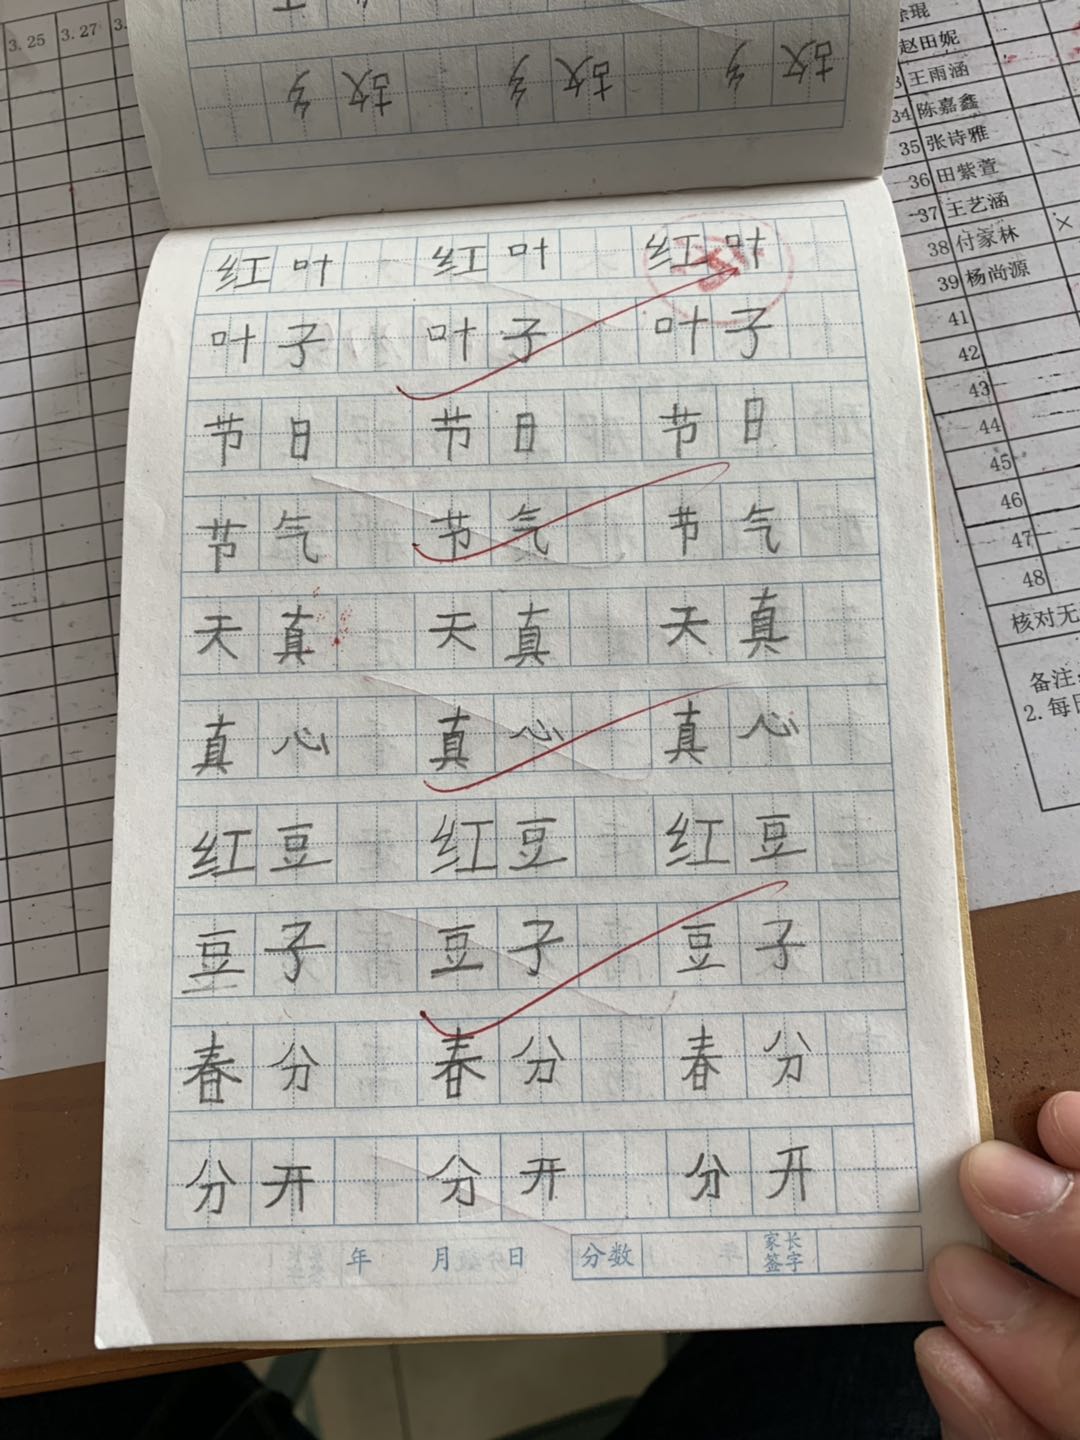 3.25 3.27 3.
乡 故 乡 故 乡 故
红叶 红叶 红叶
叶子 叶子 叶子
节日 节日 节日
节气 节气 节气
天真 天真 天真
真心 真心 真心
红豆 红豆 红豆
豆子 豆子 豆子
春分 春分 春分
分开 分开 分开
年 月 日 分数 家长签字
赵田妮
王雨涵
34 陈嘉鑫
35 张诗雅
36 田紫萱
37 王艺涵
38 付家林
39 杨尚源
41
42
43
44
45
46
47
48
核对无
备注:
2.每日